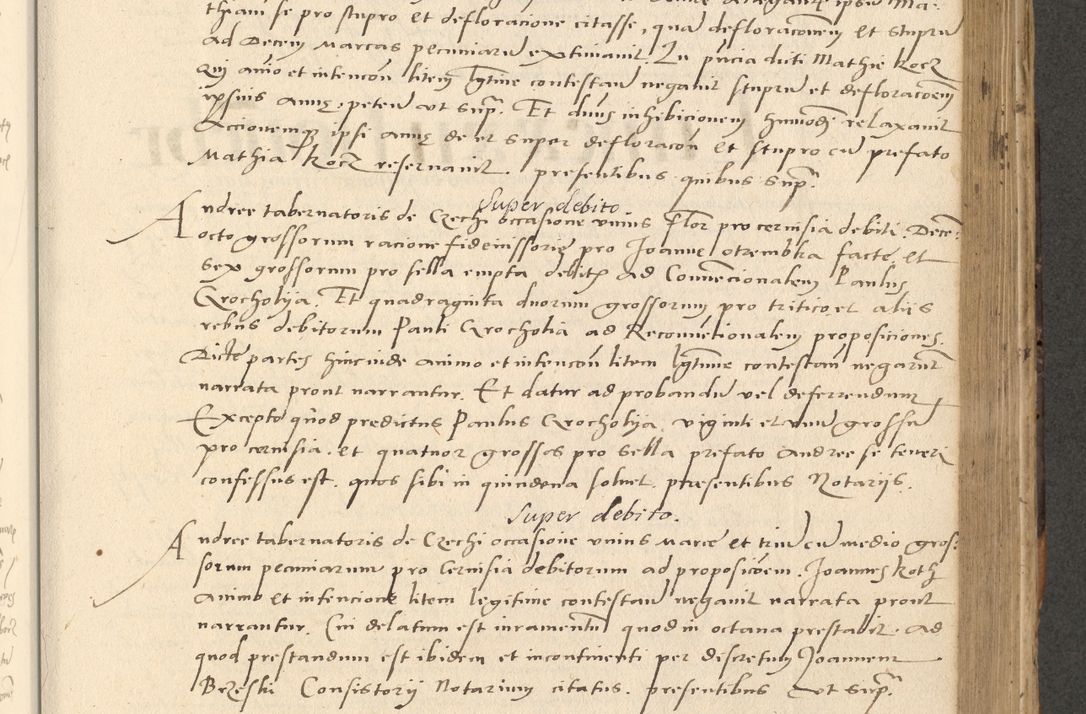 thiam se pro stupro et defloracione citasse, qua defloraconem et stupru
ad Decem Marcas pecuniaru extimavit. In pñcia dicti Mathie Kocz
qui aiõio et intencoñ litem lgtime contestan negavit stupru et defloracoem
ipsius Anne, peten ut supª. Et dnus inhibicionem hmõi relaxavit
Accionemq3 ipsi Anne de et super defloracoñ et stupro cu prefato
Mathia Kocz reservavit. presentibus quibus supª.
Super debito
Andree tabernatoris de Czechi occasione unius flor pro cervisia debiti. Decem
octo grossorum racione fideiussorie pro Joanne otrembka facte, et
sex grossorum pro sella empta debitꝝ ad Convencionalem Paulus
Grocholija. Et quadraginta duorum grossorum pro tritico et aliis
rebus debitorum Pauli Grocholia ad Reconvetionalem proposiciones.
Dicte partes hincinde animo et intencoñ litem lgtime contestan negarut
narrata prout narrantur. Et datur ad probandu vel deferrendum
Excepto quod predictus Paulus Grocholija viginti et unu grossu
pro cervisia et quatuor grossos pro sella prefato Andree se teneri
confessus est. quos sibi in quindena solvet. presentibus Notarijs.
Super debito.
Andree tabernatoris de Czechi occasione unius Marce et triu cu medio gros-
sorum pecuniarum pro Cervisia debitorum ad proposicoem. Joannes Koth
Animo et intencione litem legitime contestan negavit narrata prout
narrantur. Cui delatum est iuramentu quod in octava prestabit. Ad
quod prestandum est ibidem et incontinenti per discretum Joannem
Brzeski Consistorij Notarium citatus. presentibus ut supª.